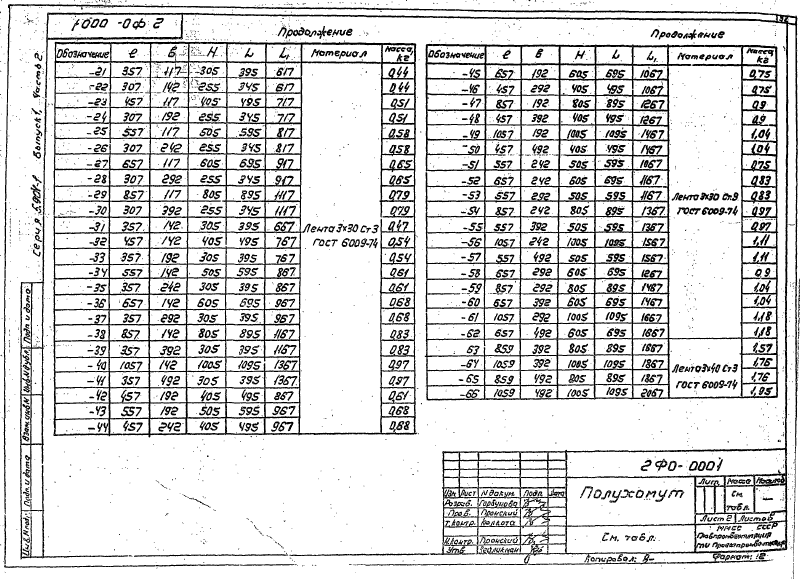 2000-0Ф2
Продолжение
Обозначение ℓ В Н L L₁ Материал Масса, кг
-21 357 117 305 395 617 0,44
-22 307 142 255 345 617 0,44
-23 457 117 405 495 717 0,51
-24 307 192 255 345 717 0,51
-25 557 117 505 595 817 0,58
-26 307 242 255 345 817 0,58
-27 657 117 605 695 917 0,65
-28 307 292 255 345 917 0,65
-29 857 117 805 895 1117 0,79
-30 307 392 255 345 1117 0,79
-31 357 142 305 395 667 Лента 3×30 Ст3 0,47
-32 457 142 405 495 767 ГОСТ 6009-74 0,54
-33 357 192 305 395 767 0,54
-34 557 142 505 595 867 0,61
-35 357 242 305 395 867 0,61
-36 657 142 605 695 967 0,68
-37 357 292 305 395 967 0,68
-38 857 142 805 895 1167 0,83
-39 357 392 305 395 1167 0,83
-40 1057 142 1005 1095 1367 0,97
-41 357 492 305 395 1367 0,97
-42 457 192 405 495 867 0,61
-43 557 192 505 595 967 0,68
-44 457 242 405 495 967 0,68
Продолжение
Обозначение ℓ В Н L L₁ Материал Масса, кг
-45 657 192 605 695 1067 0,75
-46 457 292 405 495 1067 0,75
-47 857 192 805 895 1267 0,9
-48 457 392 405 495 1267 0,9
-49 1057 192 1005 1095 1467 1,04
-50 457 492 405 495 1467 1,04
-51 557 242 505 595 1067 0,75
-52 657 242 605 695 1167 0,83
-53 557 292 505 595 1167 Лента 3×30 Ст3 0,83
-54 857 242 805 895 1367 ГОСТ 6009-74 0,97
-55 557 392 505 595 1367 0,97
-56 1057 242 1005 1095 1567 1,11
-57 557 492 505 595 1567 1,11
-58 657 292 605 695 1267 0,9
-59 857 292 805 895 1467 1,04
-60 657 392 605 695 1467 1,04
-61 1057 292 1005 1095 1667 1,18
-62 657 492 605 695 1667 1,18
63 859 392 805 895 1667 1,57
-64 1059 392 1005 1095 1867 Лента 3×40 Ст3 1,76
-65 859 492 805 895 1867 ГОСТ 6009-74 1,76
-66 1059 492 1005 1095 2067 1,95
Серия 5.904-1 Выпуск 1, часть 2
Инв.№подл. Подп. и дата Взам.инв.№ Инв.№дубл. Подп. и дата
2Ф0-0001
Изм Лист № докум. Подп. Дата
Разраб. Горбунова
Пров. Пронский
Т.контр.
Н.контр. Пронский
Утв.
Полухомут
См. табл.
Лит. Масса Масштаб
См. табл. —
Лист 2 Листов 6
ММСС СССР
Копировал:
Формат: 12